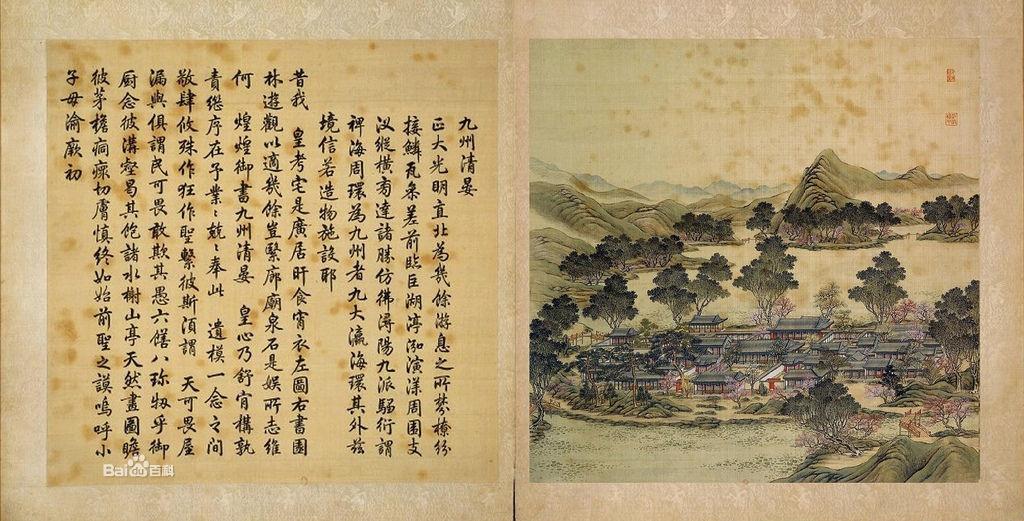 九州清晏
正大光明直北為幾餘游息之所棼橑紛
接鱗瓦參差前臨巨湖渟泓演漾周圍支
汊縱橫旁達諸勝仿彿潯陽九派騶衍謂
裨海周環為九州者九大瀛海環其外茲
境信若造物施設耶
昔我 皇考宅是廣居旰食宵衣左圖右書園
林遊觀以適幾餘豈繄廊廟泉石是娛所志維
何 煌煌御書九州清晏 皇心乃舒肯構孰
責繼序在予業〻兢〻奉此 遺模一念之間
敬肆攸殊作狂作聖繫彼斯須謂 天可畏屋
漏與俱謂民可畏敢欺其愚六膳八珍牣乎御
廚念彼溝壑曷其飽諸水榭山亭天然畫圖瞻
彼茅檐痌瘝切膚慎終如始前聖之謨嗚呼小
子毋渝厥初
Bai百科